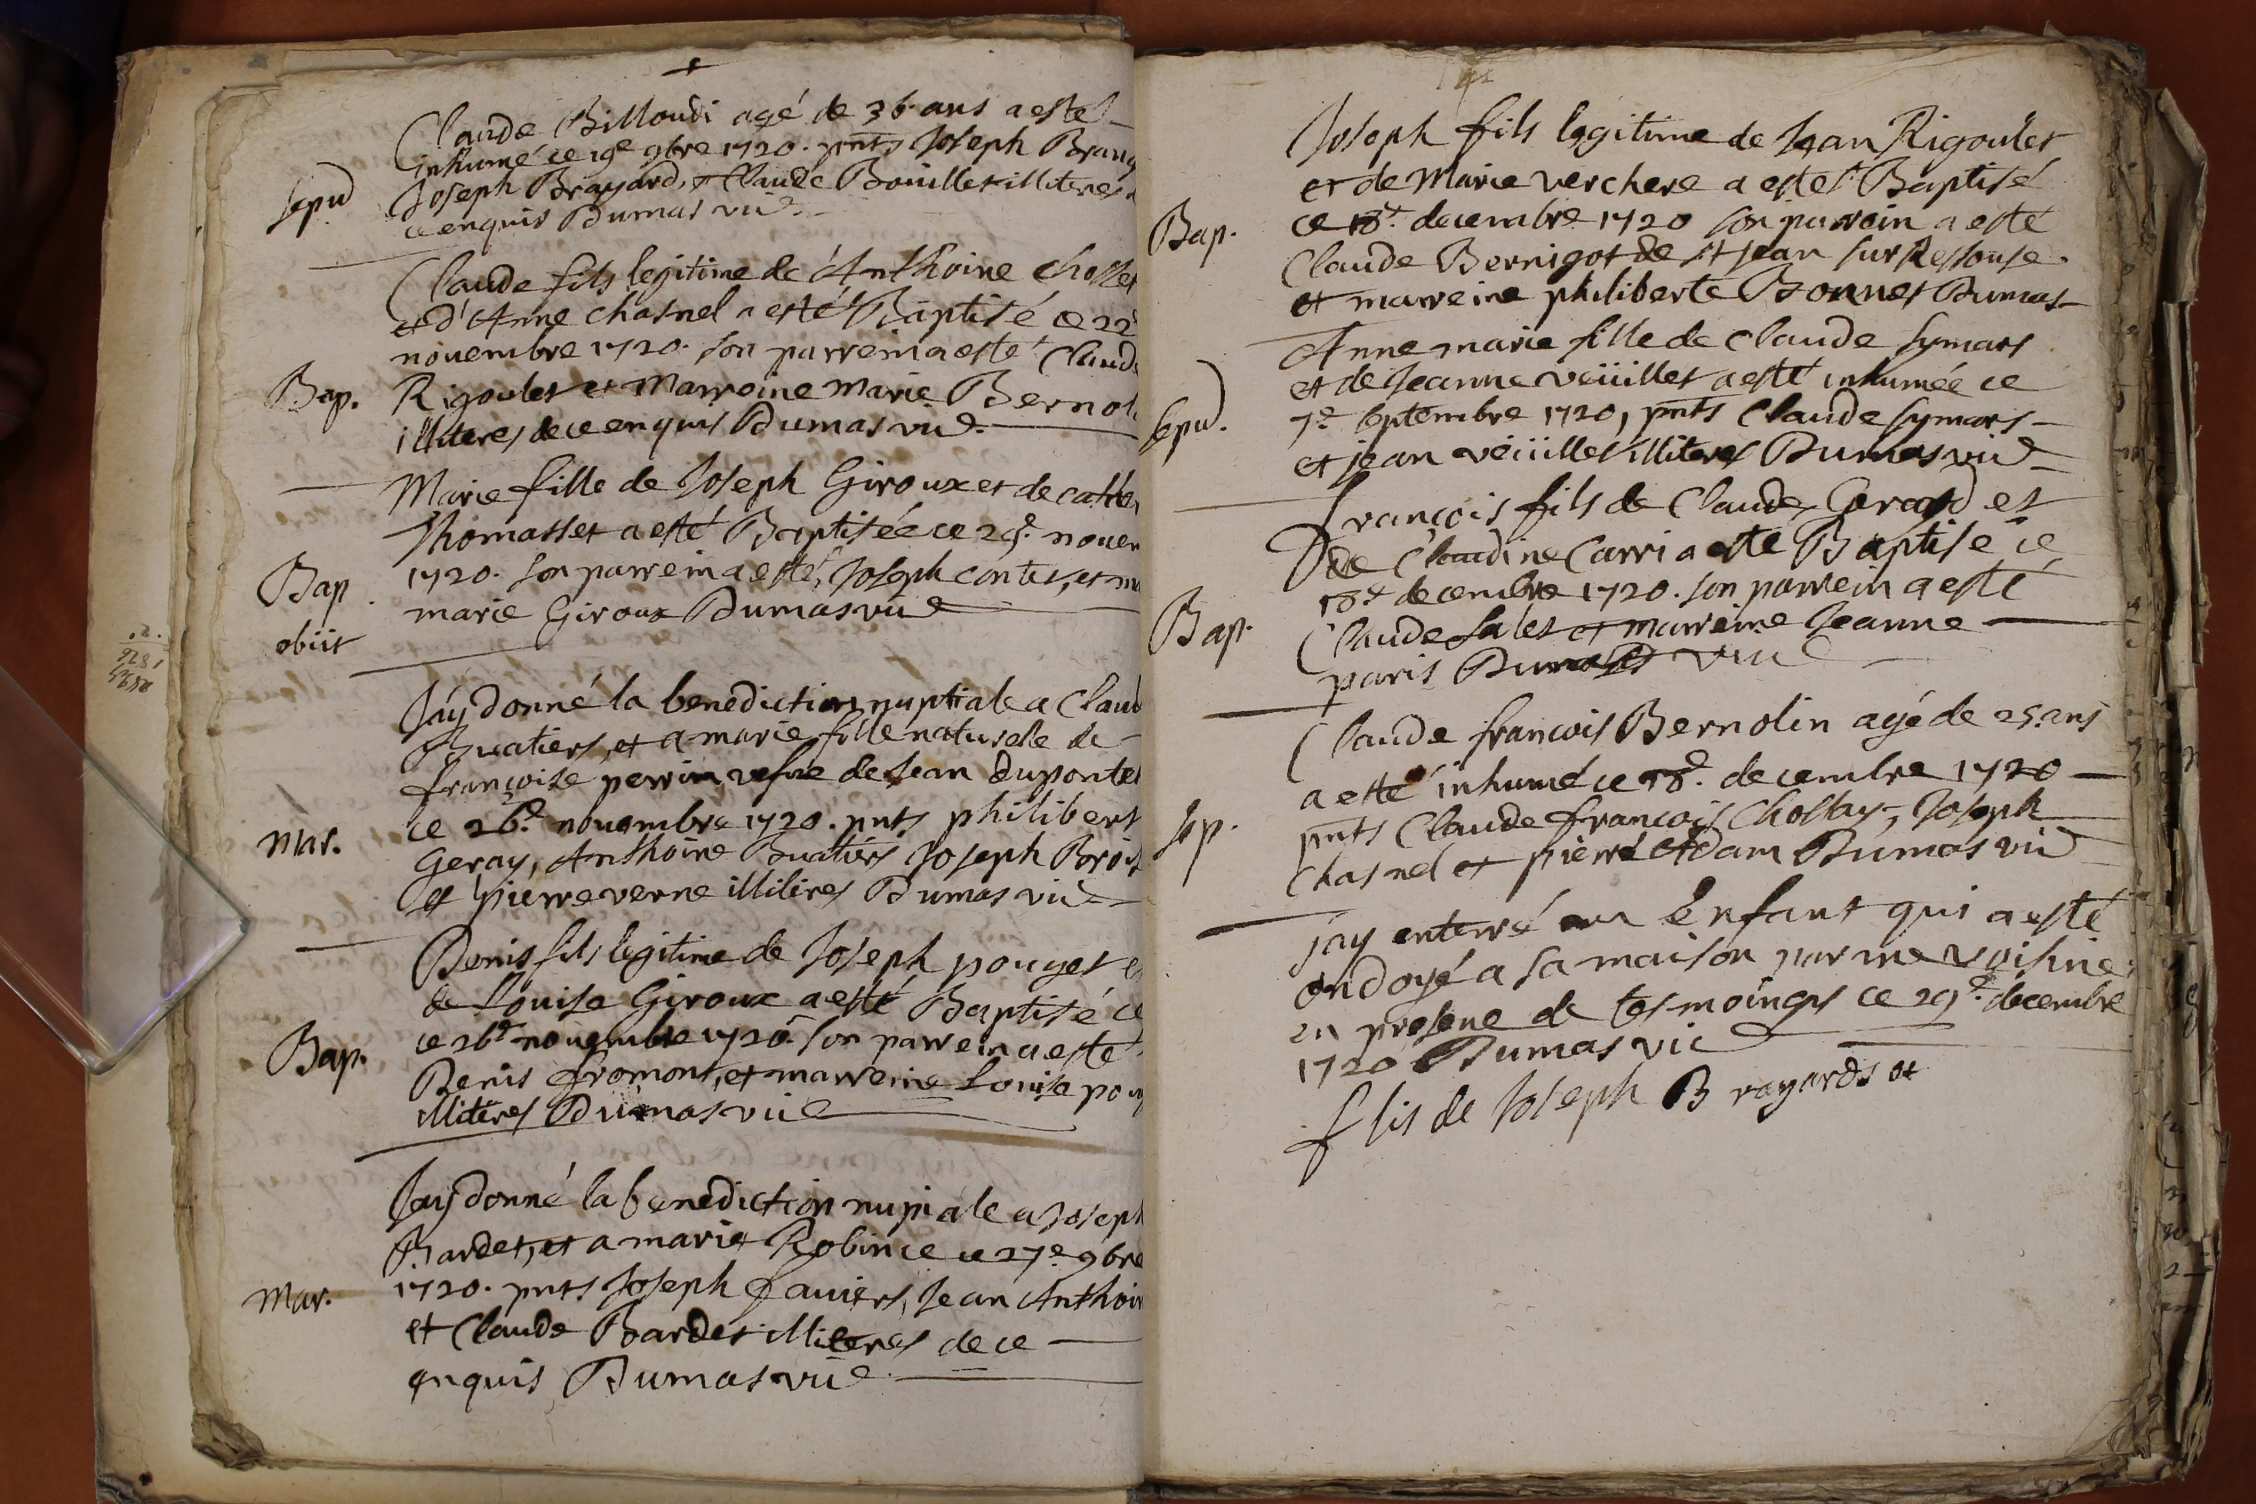 Claude Billoudi agé de 36 ans a esté
Inhumé ce 19e 9bre 1720. pnts Joseph Brang
Sepu Joseph Brayard, et Claude Bouillet illiteres
ce enquis Dumas vic
Claude fils legitime de Anthoine Chosse
et d'Anne Chasnel a esté Baptisé ce 22
novembre 1720. son parrein a esté Claude
Bap. Rigoulet et Marroine Marie Bernol
illiteres de ce enquis Dumas vic
Marie fille de Joseph Giroux et de cathe
Thomasset a esté Baptisée ce 25e. noven
Bap. 1720. son parrein a esté Joseph contet, et ma
obiit marie Giroux Dumas vic
Jay donné la benediction nuptiale a Claud
Buatiers, et a marie fille naturelle de
françoise perrin vefve de Jean dupontel
Mar. ce 26e. novembre 1720. pnts philibert
Geray, Anthoine Buatiers Joseph Brois
et pierre verne illitires Dumas vic
Denis fils legitime de Joseph pouget e
de Louise Giroux a esté Baptisé ce
Bap. ce 26e novembre 1720. son parrein a esté
Denis fromont, et marreine Louise poug
illiteres Dumas vic
Jay donné la benediction nupiale a Joseph
Bardet, et a marie Robin ce ce 27e 9bre
Mar. 1720. pnts Joseph faviers, Jean Anthoin
et Claude Bardet illiteres de ce
enquis Dumas vic
Joseph fils legitime de Jean Rigoulet
et de Marie verchere a esté Baptisé
Bap. ce 18e. decembre 1720 son parroin a esté
Claude Bernigot de st jean sur Ressouse
et marreine philiberte Bonnet Dumas
Anne marie fille de Claude symars
et de Jeanne veüillet a esté inhumée ce
Sepu. 7e septembre 1720, pnts Claude symars
et jean veüillet illiteres Dumas vic
François fils de Claude Gerard et
de Claudine Carri a esté Baptisé ce
18e decembre 1720. son parrein a esté
Bap. Claude Salet et marreine Jeanne
paris Dumas vic
Claude françois Bernolin agé de 25. ans
a esté inhumé ce 18e. decembre 1720
Sep. pnts Claude françois Chossay, Joseph
Chasnel et pierre Adam Dumas vic
jay enterré un Enfant qui a esté
ondoyé a sa maison par une voisine
en presene de tesmoings ce 29e. decembre
1720 Dumas vic
flis de Joseph Brayards et